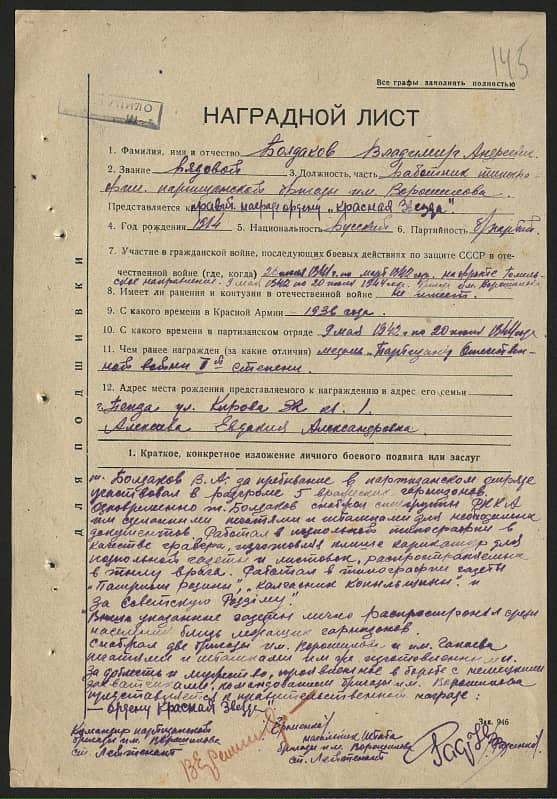 145
Все графы заполнять полностью
НАГРАДНОЙ ЛИСТ
1. Фамилия, имя и отчество Болдаков Владимир
2. Звание Рядовой 3. Должность, часть Работник
партизанской бригады им. Ворошилова
Представляется к правит. награде ордену „Красная Звезда".
4. Год рождения 1914 5. Национальность Русский 6. Партийность
7. Участие в гражданской войне, последующих боевых действиях по защите СССР в оте-
чественной войне (где, когда) 1941 г. по март 1942 на фронте
направление. 9 мая 1942 по 20 июня 1944
8. Имеет ли ранения и контузии в отечественной войне не имеет.
9. С какого времени в Красной Армии 1936 года.
10. С какого времени в партизанском отряде 9 мая 1942 г. по 20 июня 1944 года
11. Чем ранее награжден (за какие отличия) медаль „Партизану Отечествен-
ной войны степени.
12. Адрес места рождения представляемого к награждению и адрес его семьи
г. ул. Кирова кв. 1.
Алексеева Евдокия Александровна
ДЛЯ ПОДШИВКИ
1. Краткое, конкретное изложение личного боевого подвига или заслуг
т. Болдаков В.А. за пребывание в партизанском отряде
участвовал в разгроме 5 вражеских гарнизонов.
Одновременно т. Болдаков снабжал
печатями и штампами для необходимых
документов. Работал в подпольной типографии в
качестве гравера, изготовлял клише карикатур для
подпольной газеты и листовок, распространяемых
в тылу врага. Работал в типографии газеты
"Патриот родины", "Колхозник и
"За Советскую Родину".
указанные газеты лично распространял среди
населения гарнизонов.
Снабжал две бригады им. Ворошилова и им. Чапаева
печатями и штампами им же изготовленными.
За доблесть и мужество, проявленное в борьбе с немецкими
захватчиками, командованием бригады им. Ворошилова
представляется к правительственной награде:
— ордену Красная Звезда"
Зак. 946
Командир партизанской
бригады им. Ворошилова
ст. Лейтенант
Начальник Штаба
бригады им. Ворошилова
ст. Лейтенант